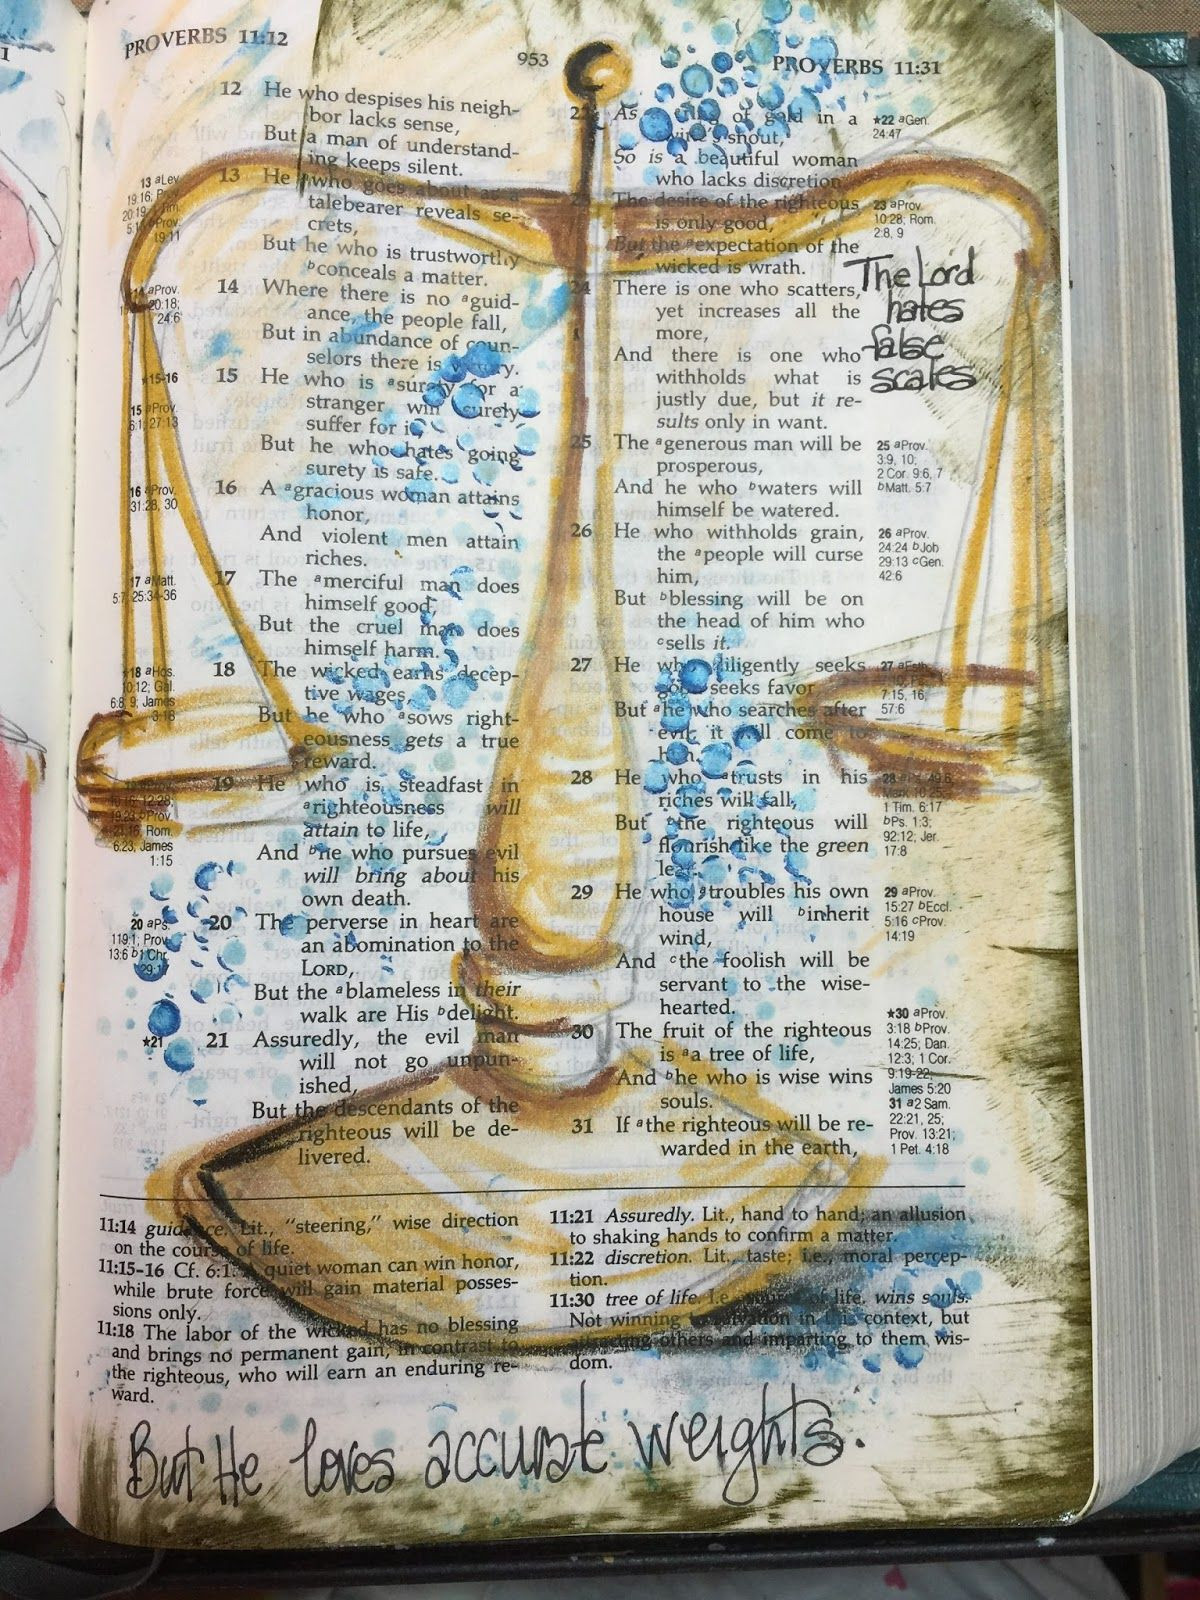 PROVERBS 11:12
953
PROVERBS 11:31
12 He who despises his neigh-
bor lacks sense,
But a man of understand-
ing keeps silent.
13 He who goes about as a
talebearer reveals se-
crets,
But he who is trustworthy
b conceals a matter.
14 Where there is no a guid-
ance, the people fall,
But in abundance of coun-
selors there is victory.
15 He who is a surety for a
stranger will surely
suffer for it,
But he who hates going
surety is safe.
16 A a gracious woman attains
honor,
And violent men attain
riches.
17 The a merciful man does
himself good,
But the cruel man does
himself harm.
18 The wicked earns decep-
tive wages,
But he who a sows right-
eousness gets a true
reward.
19 He who is steadfast in
a righteousness will
attain to life,
And b he who pursues evil
will bring about his
own death.
20 The perverse in heart are
an abomination to the
LORD,
But the a blameless in their
walk are His b delight.
21 Assuredly, the evil man
will not go unpun-
ished,
But the descendants of the
righteous will be de-
livered.
13 a Lev.
19:16,
20:19,
19:11
14 a Prov.
20:18;
24:6
★15-16
15 a Prov.
6:1; 27:13
16 a Prov.
31:28, 30
17 a Matt.
5:7; 25:34-36
★18 a Hos.
10:12; Gal.
6:8, 9; James
3:18
19:23 b Prov.
21:16; Rom.
6:23; James
1:15
20 a Ps.
119:1; Prov.
13:6 b 1 Chr.
29:17
★21
22 As a ring of gold in a
swine's snout,
So is a beautiful woman
who lacks discretion.
23 The desire of the righteous
is only good,
But the a expectation of the
wicked is wrath.
24 There is one who scatters,
yet increases all the
more,
And there is one who
withholds what is
justly due, but it re-
sults only in want.
25 The a generous man will be
prosperous,
And he who b waters will
himself be watered.
26 He who withholds grain,
the a people will curse
him,
But b blessing will be on
the head of him who
c sells it.
27 He who diligently seeks
good seeks favor,
But a he who searches after
evil, it will come to
him.
28 He who a trusts in his
riches will fall,
But b the righteous will
flourish like the green
leaf.
29 He who a troubles his own
house will b inherit
wind,
And c the foolish will be
servant to the wise-
hearted.
30 The fruit of the righteous
is a a tree of life,
And b he who is wise wins
souls.
31 If a the righteous will be re-
warded in the earth,
★22 a Gen.
24:47
23 a Prov.
10:28; Rom.
2:8, 9
The Lord
hates
false
scales
25 a Prov.
3:9, 10;
2 Cor. 9:6, 7
b Matt. 5:7
26 a Prov.
24:24 b Job
29:13 c Gen.
42:6
27 a Esth.
7:15, 16;
57:6
28 a Ps. 49:6;
Mark 10:25;
1 Tim. 6:17
b Ps. 1:3;
92:12; Jer.
17:8
29 a Prov.
15:27 b Eccl.
5:16 c Prov.
14:19
★30 a Prov.
3:18 b Prov.
14:25; Dan.
12:3; 1 Cor.
9:19-22;
James 5:20
31 a 2 Sam.
22:21, 25;
Prov. 13:21;
1 Pet. 4:18
11:14 guidance. Lit., "steering," wise direction
on the course of life.
11:15-16 Cf. 6:1. A quiet woman can win honor,
while brute force will gain material posses-
sions only.
11:18 The labor of the wicked has no blessing
and brings no permanent gain, in contrast to
the righteous, who will earn an enduring re-
ward.
11:21 Assuredly. Lit., hand to hand; an allusion
to shaking hands to confirm a matter.
11:22 discretion. Lit., taste; i.e., moral percep-
tion.
11:30 tree of life. I.e. a source of life. wins souls.
Not winning to salvation in this context, but
attracting others and imparting to them wis-
dom.
But He loves accurate weights.